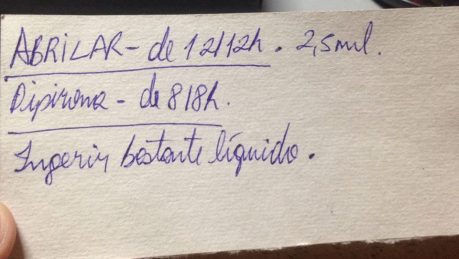 ABRILAR - de 12/12h. 2,5ml.
Dipirona - de 8/8h.
Ingerir bastante líquido.